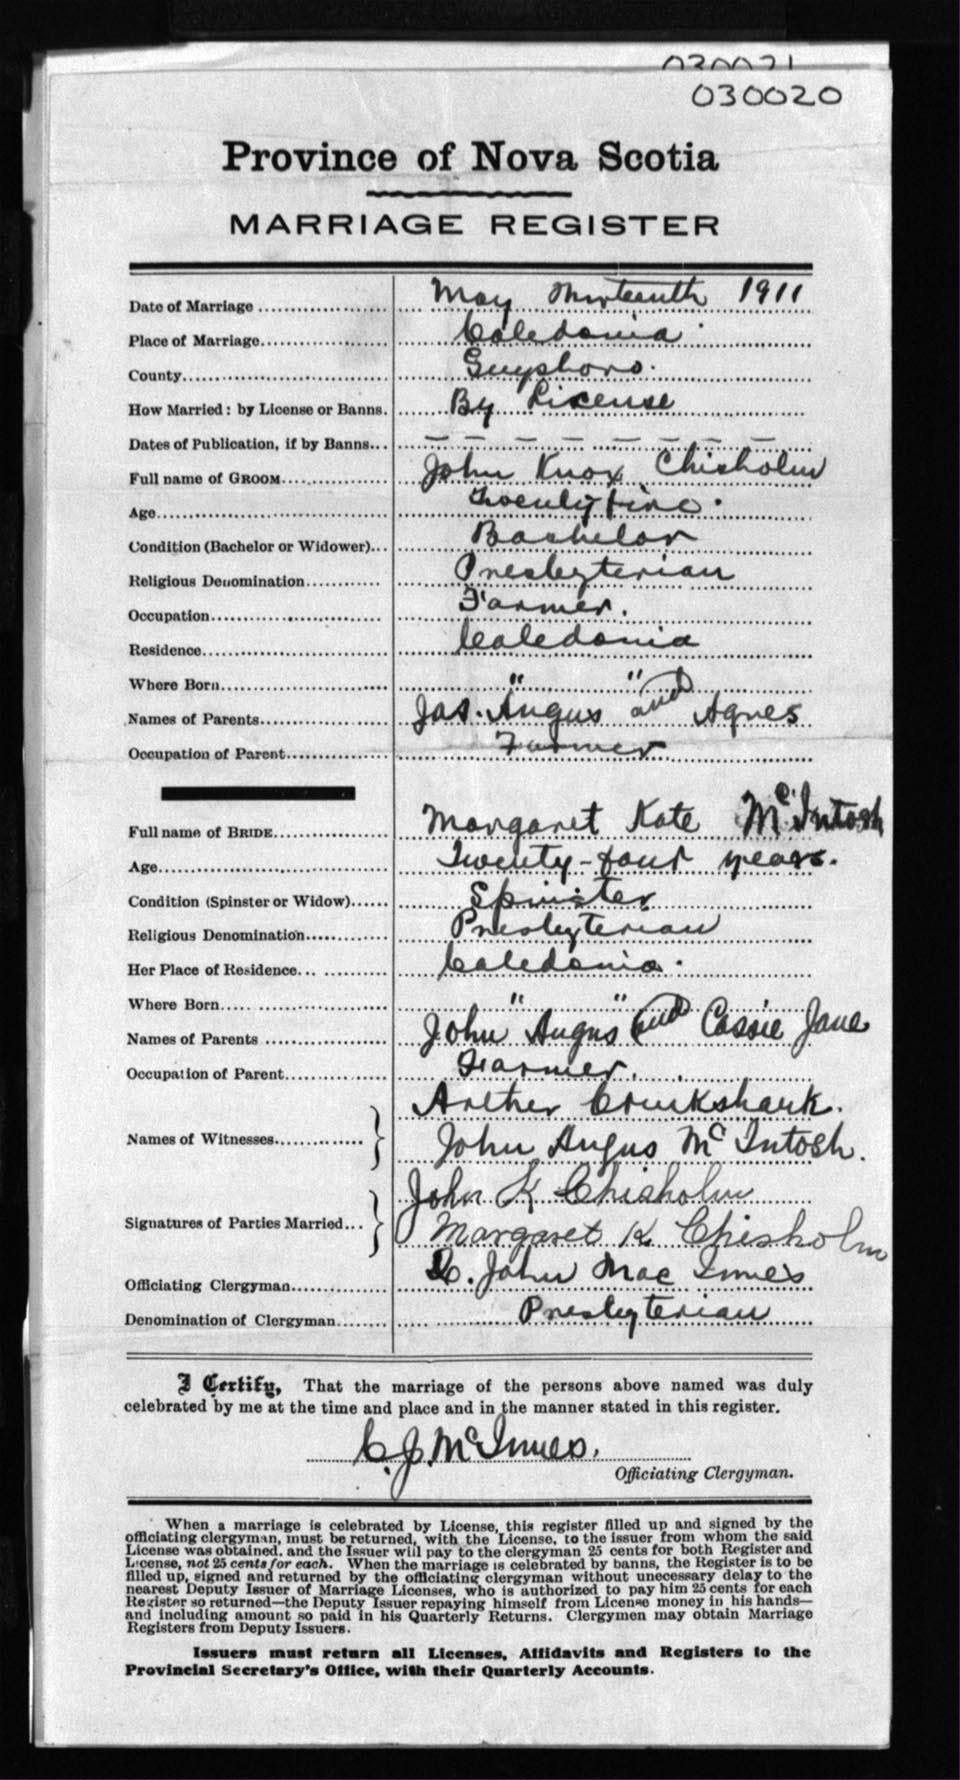 030021
030020
Province of Nova Scotia
MARRIAGE REGISTER
Date of Marriage May Thirteenth 1911
Place of Marriage Caledonia
County Guysboro.
How Married: by License or Banns. By License
Dates of Publication, if by Banns — — — — — — — —
Full name of GROOM John Knox Chisholm
Age Twenty five
Condition (Bachelor or Widower) Bachelor
Religious Denomination Presbyterian
Occupation Farmer.
Residence Caledonia
Where Born " "
Names of Parents Jas. Angus and Agnes
Occupation of Parent Farmer
Full name of BRIDE Margaret Kate McIntosh
Age Twenty-four years.
Condition (Spinster or Widow) Spinster
Religious Denomination Presbyterian
Her Place of Residence Caledonia.
Where Born " "
Names of Parents John Angus and Cassie Jane
Occupation of Parent Farmer.
Arther Cruikshank.
Names of Witnesses John Angus McIntosh.
John K Chisholm
Signatures of Parties Married Margaret K Chisholm
Officiating Clergyman C. John Mac Innes
Denomination of Clergyman Presbyterian
I Certify, That the marriage of the persons above named was duly
celebrated by me at the time and place and in the manner stated in this register.
C. J. McInnes.
Officiating Clergyman.
When a marriage is celebrated by License, this register filled up and signed by the
officiating clergyman, must be returned, with the License, to the issuer from whom the said
License was obtained, and the Issuer will pay to the clergyman 25 cents for both Register and
License, not 25 cents for each. When the marriage is celebrated by banns, the Register is to be
filled up, signed and returned by the officiating clergyman without unnecessary delay to the
nearest Deputy Issuer of Marriage Licenses, who is authorized to pay him 25 cents for each
Register so returned—the Deputy Issuer repaying himself from License money in his hands—
and including amount so paid in his Quarterly Returns. Clergymen may obtain Marriage
Registers from Deputy Issuers.
Issuers must return all Licenses, Affidavits and Registers to the
Provincial Secretary's Office, with their Quarterly Accounts.